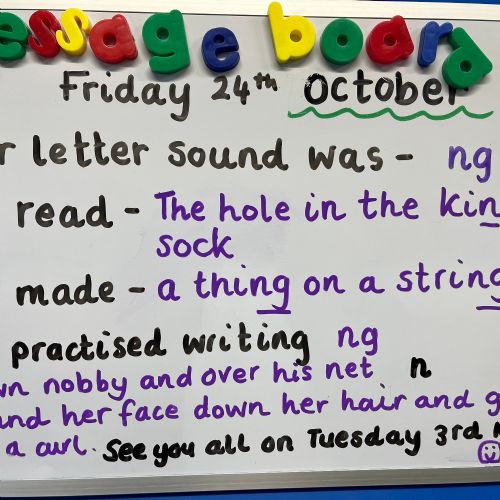 essage board
Friday 24th October
r letter sound was - ng
read - The hole in the kin
sock
made - a thing on a string
practised writing ng
wn nobby and over his net n
und her face down her hair and g
a curl. See you all on Tuesday 3rd N